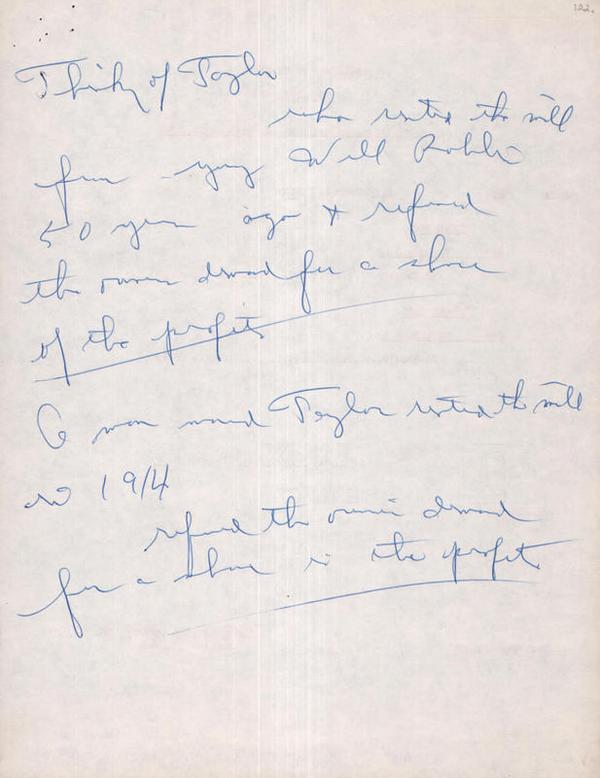 122.
Think of Taylor
who rented the mill
from young Will
50 years ago & refused
the owners demand for a share
of the profits
A man named Taylor rented the mill
in 1914
refused the owners demand
for a share in the profits